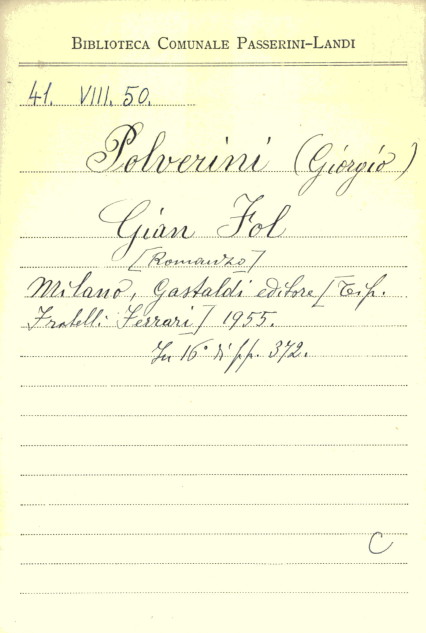 BIBLIOTECA COMUNALE PASSERINI-LANDI
41. VIII. 50.
Polverini (Giorgio)
Gian Fol
[Romanzo]
Milano, Gastaldi editore [Tip.
Fratelli Ferrari] 1955.
In 16° di pp. 372.
C